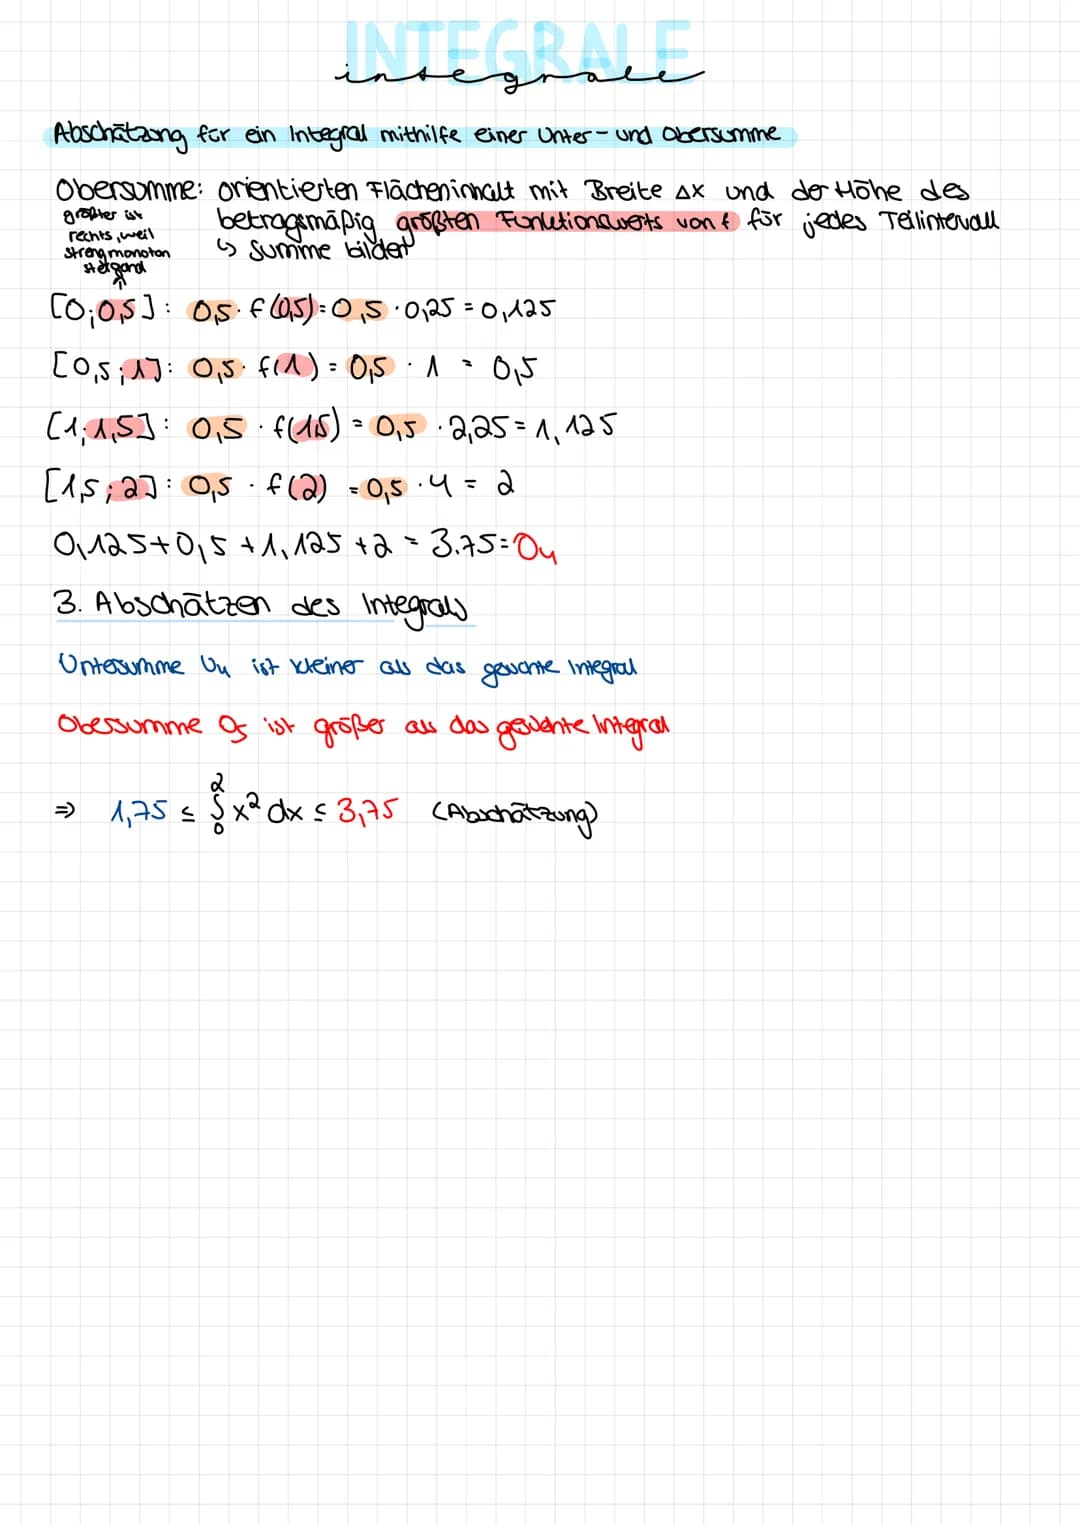 INTEGRALE
integrale
Abschätzung für ein Integral mithilfe einer Unter- und Obersumme
Obersumme: orientierten Flächeninhalt mit Breite Δx und der Höhe des
betragsmäßig größten Funktionswerts von f für jedes Teilintervall
↳ Summe bilden
größter ist
rechts, weil
streng monoton
steigend
[0;0,5]: 0,5 · f(0,5) = 0,5 · 0,25 = 0,125
[0,5;1]: 0,5 · f(1) = 0,5 · 1 = 0,5
[1;1,5]: 0,5 · f(1,5) = 0,5 · 2,25 = 1,125
[1,5;2]: 0,5 · f(2) = 0,5 · 4 = 2
0,125+0,5+1,125+2 = 3.75 = O4
3. Abschätzen des Integrals
Untersumme U4 ist kleiner als das gesuchte Integral
Obersumme O5 ist größer als das gesuchte Integral
⇒ 1,75 ≤ ∫₀² x² dx ≤ 3,75 (Abschätzung)